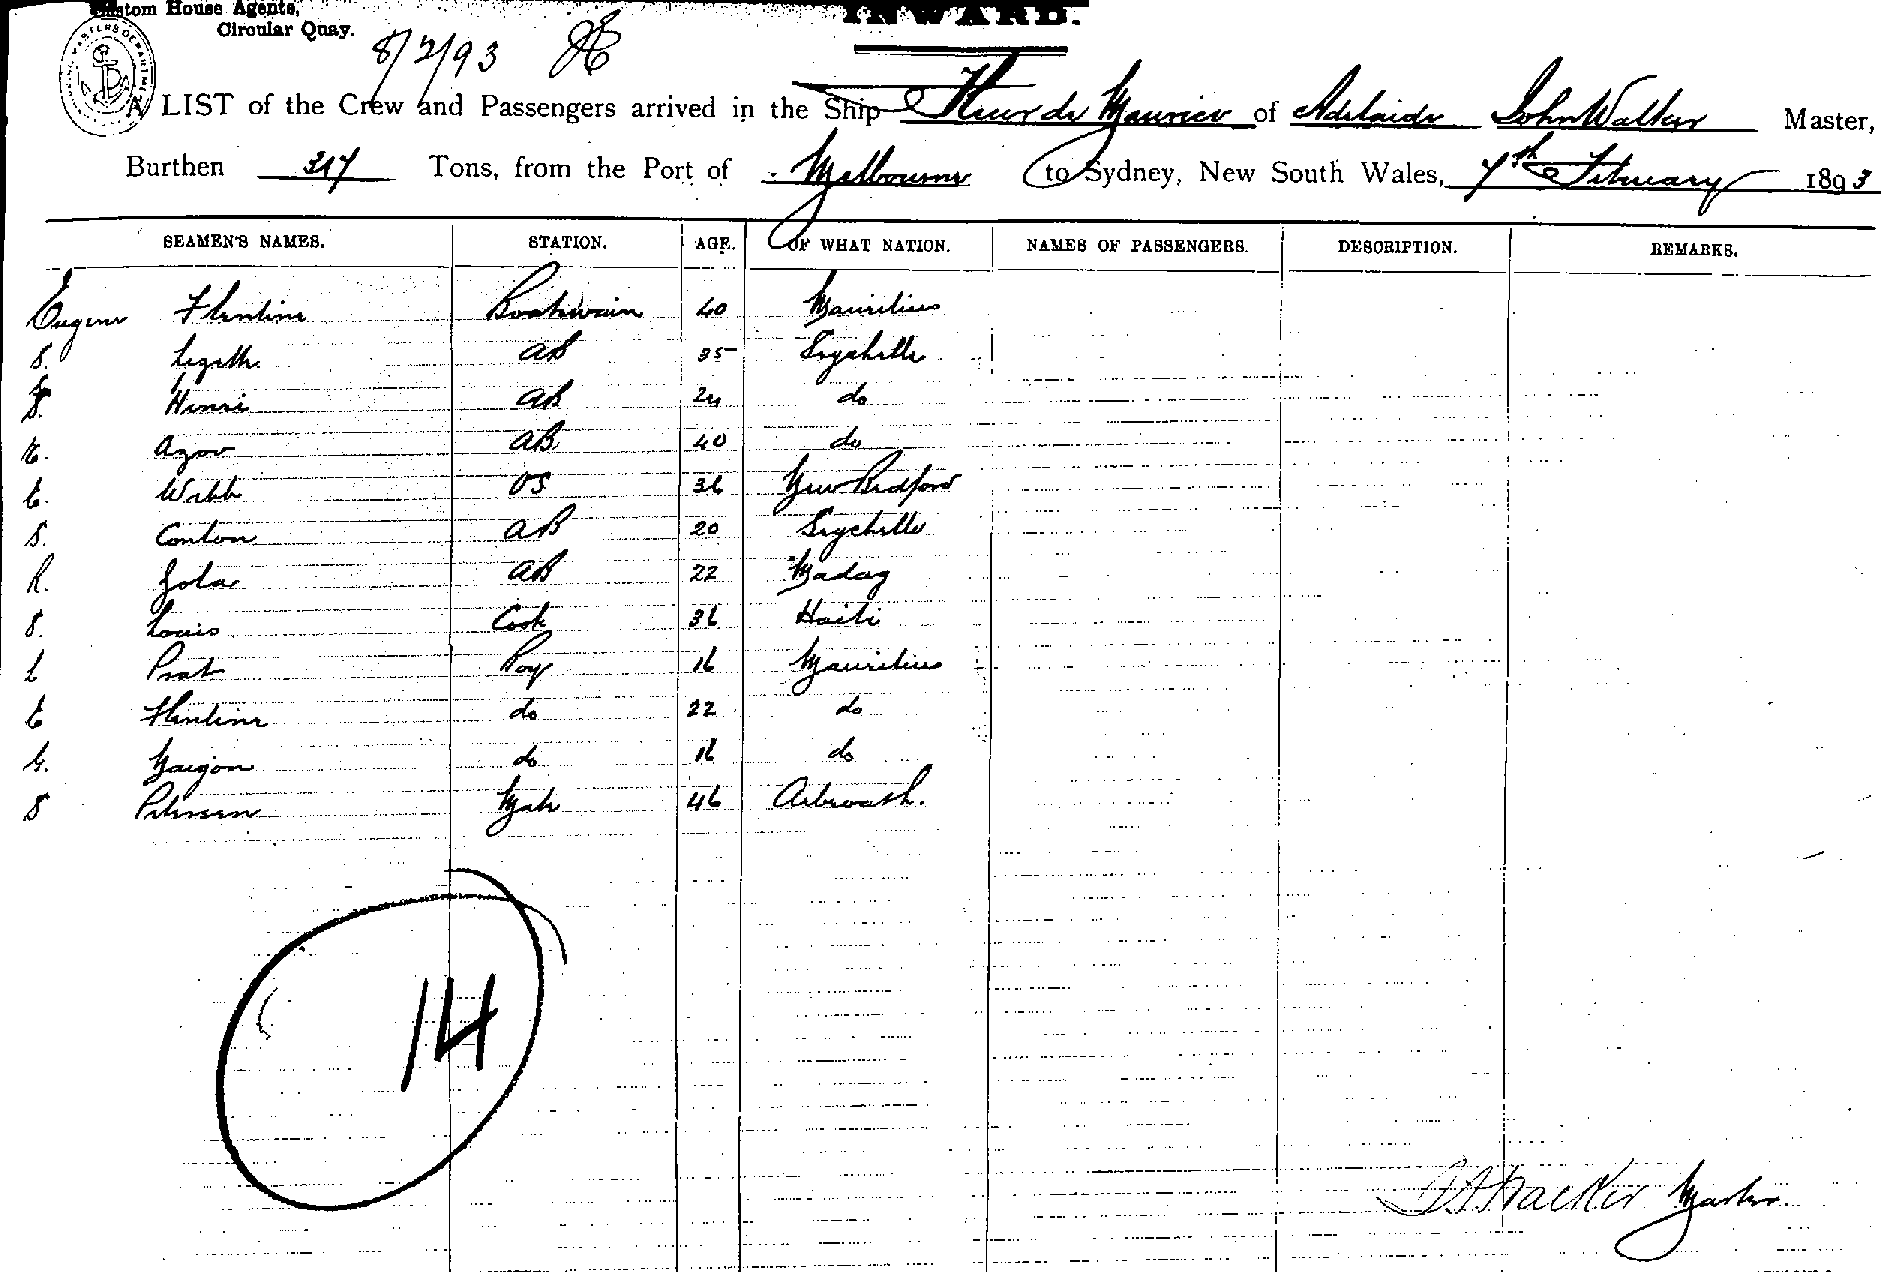 Custom House Agents,
Circular Quay.
INWARD.
8/2/93
A LIST of the Crew and Passengers arrived in the Ship Fleur de Maurice of Adelaide John Walker Master,
Burthen 317 Tons, from the Port of Melbourne to Sydney, New South Wales, 7th February 1893
SEAMEN'S NAMES. STATION. AGE. OF WHAT NATION. NAMES OF PASSENGERS. DESCRIPTION. REMARKS.
Eugene Flentine Boatswain 40 Mauritius
S. AB 35 Seychelle
Henri AB 24 do
Azor AB 40 do
E. Webb OS 36 New Bedford
S. Conton AB 20 Seychelle
R. AB 22 Madag
Louis Cook 36 Haiti
L Prat Boy 16 Mauritius
E Flentine do 22 do
G. do 16 do
Petersen Mate 46 Arbroath.
14
Master